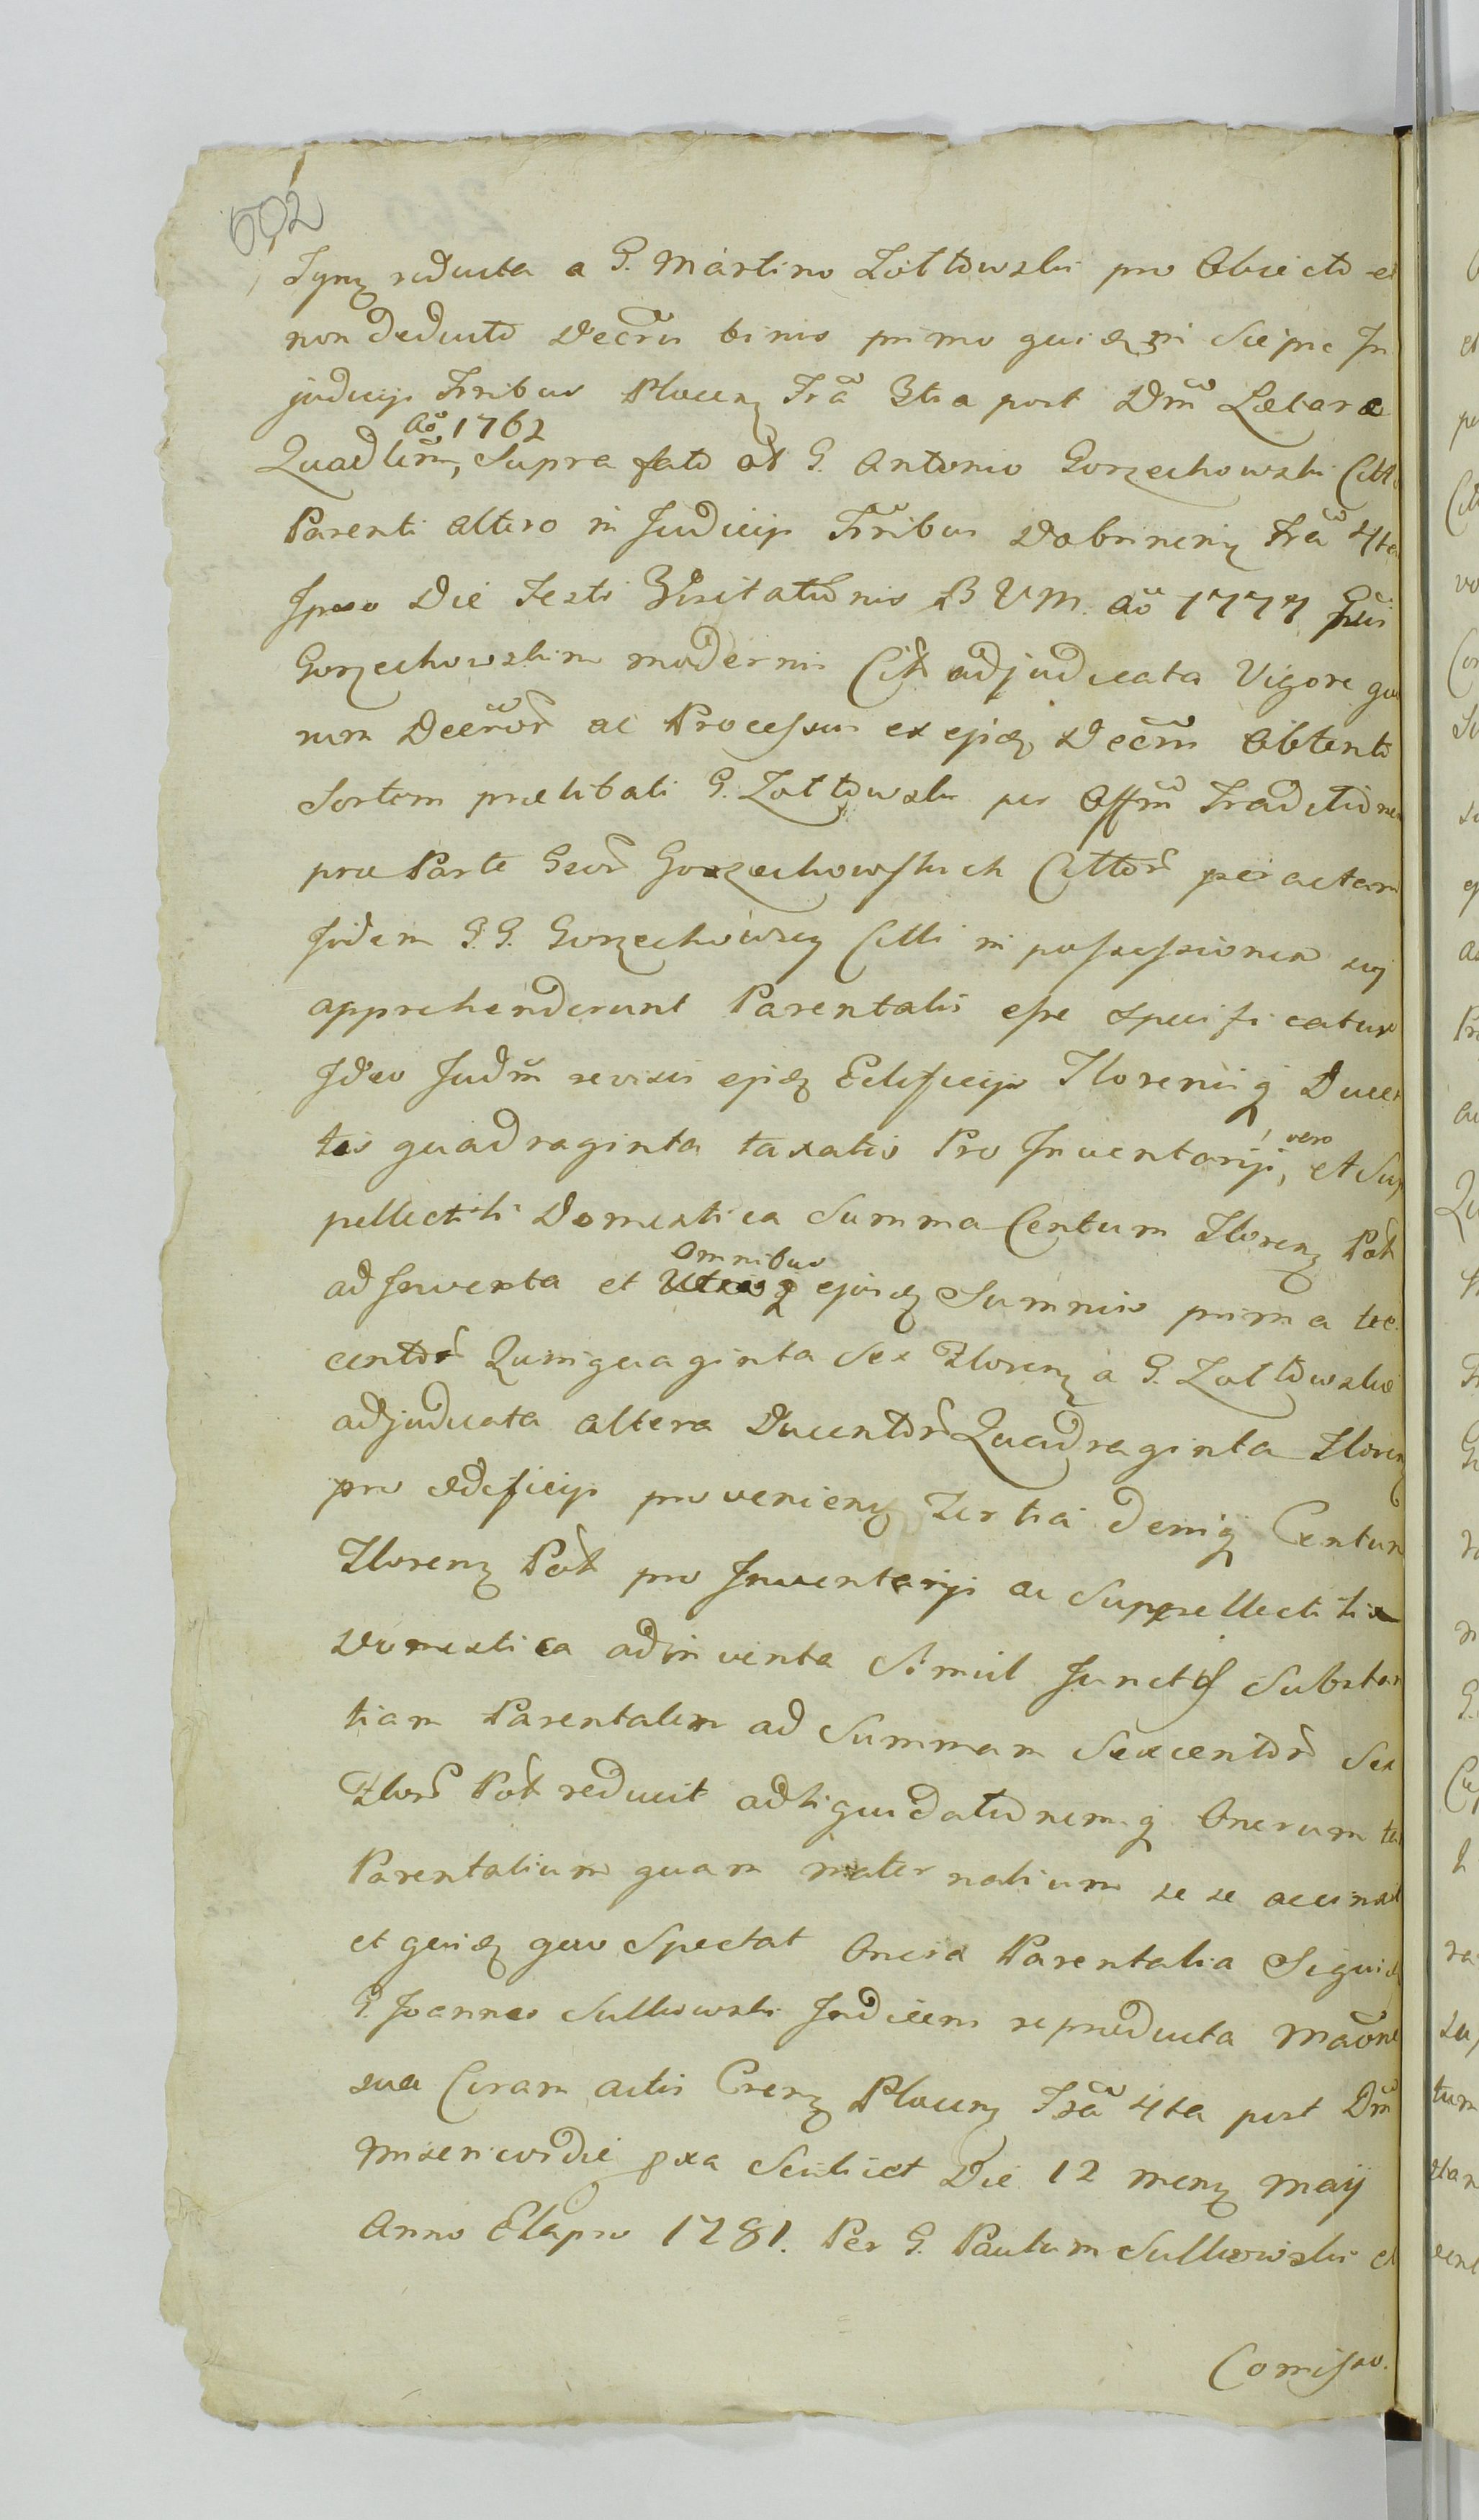 602
reducta a G. Martino Zołtowski pro Obiecto et
non deducto Decrũ binis primo quidz in Sierpc In
judicijs Trribus Plocenz Frã 3tia post Dnĩ Lætare
Aõ 1762
Quadlem, Supra fato ab G. Antonio Gorzechowski Citt
Parenti altero in Judicijs Trribus Dobrinenz Frã 4ta
Ipso Die Festi Visitationis B V M. Aõ 1777
Gorzechowskim modernis Citt adjudicata Vigore quo
rum Decrror ac Processus ex ejsdz Decrm Obtenti
Sortem prælibati G. Zołtowski per Offm Traditione
præ Parte Gror Gorzechowskich Cittor peractam
Iidem G. G. Gorzechowscy Citti in possessionem suj
apprehenderunt Parentalis esse specificatur
Ideo Judm revisis ejsdz Edificijs Florenisq Ducen
tis quadraginta taxatis Pro Inventarijs, vero et Sup
pellectili Domestica Summa Centum Florenz Pol
adinventa et omnibus ejusdz Summis prima tre
centor Quinquaginta Sex Florenz a G. Zołtowskie
adjudicata altera Ducentor Quadraginta Floren
pro ædificijs provenienz Tertia deniq Centum
Florenz Pol pro Inventarijs ac Suppellectilia
Domestica adinventa Simul Junctis Substan
tiam Parentalem ad Summam Sexcentor Sex
Flor Pol reducit adliquidationemq Onerum ta
Parentalium quam maternalium se se accinxit
et quidz quo Spectat Onera Parentalia Siquid
G. Joannes Sulkowski Judicem reproducta
sua Coram actis Crenz Plocenz Frã 4ta post Dnĩ
Misericordie pxa Scilicet Die 12 menz Maij
Anno Elapso 1781. Per G. Paulum Sulkowski et
Comisso.